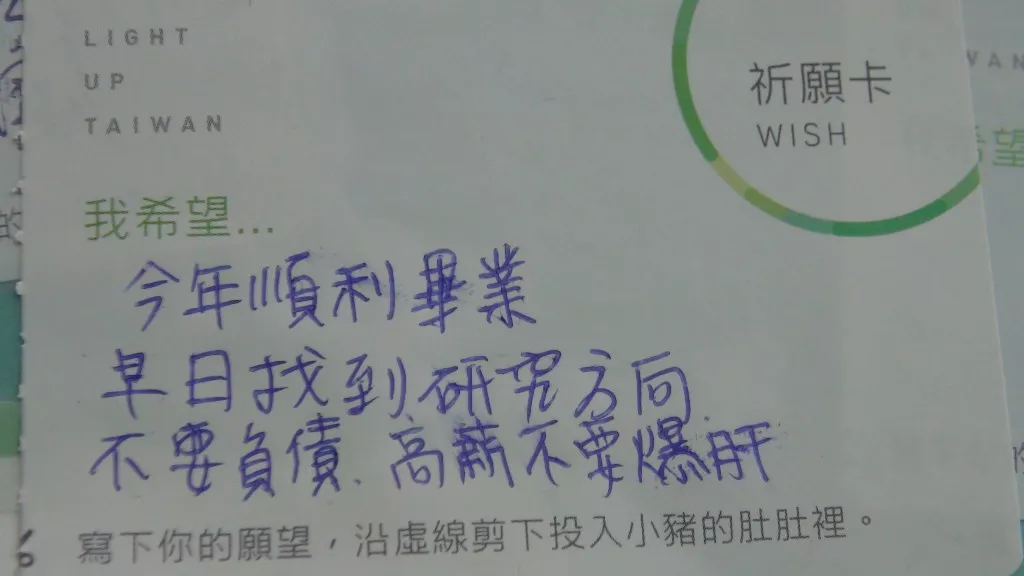 LIGHT
UP
TAIWAN
祈願卡
WISH
我希望...
今年順利畢業
早日找到研究方向
不要負債、高薪不要爆肝
寫下你的願望，沿虛線剪下投入小豬的肚肚裡。
WAN
希望
的
6